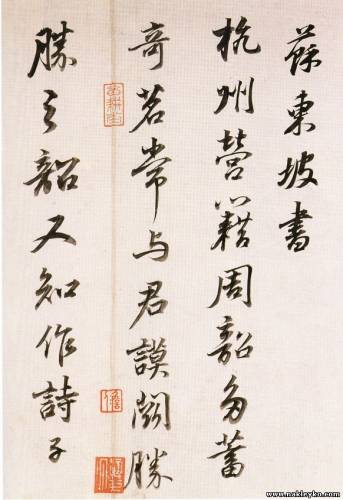 蘇東坡書
杭州營籍周韶多蓄
奇茗常与君謨鬪勝
勝之韶又知作詩子
www.nakleyko.com